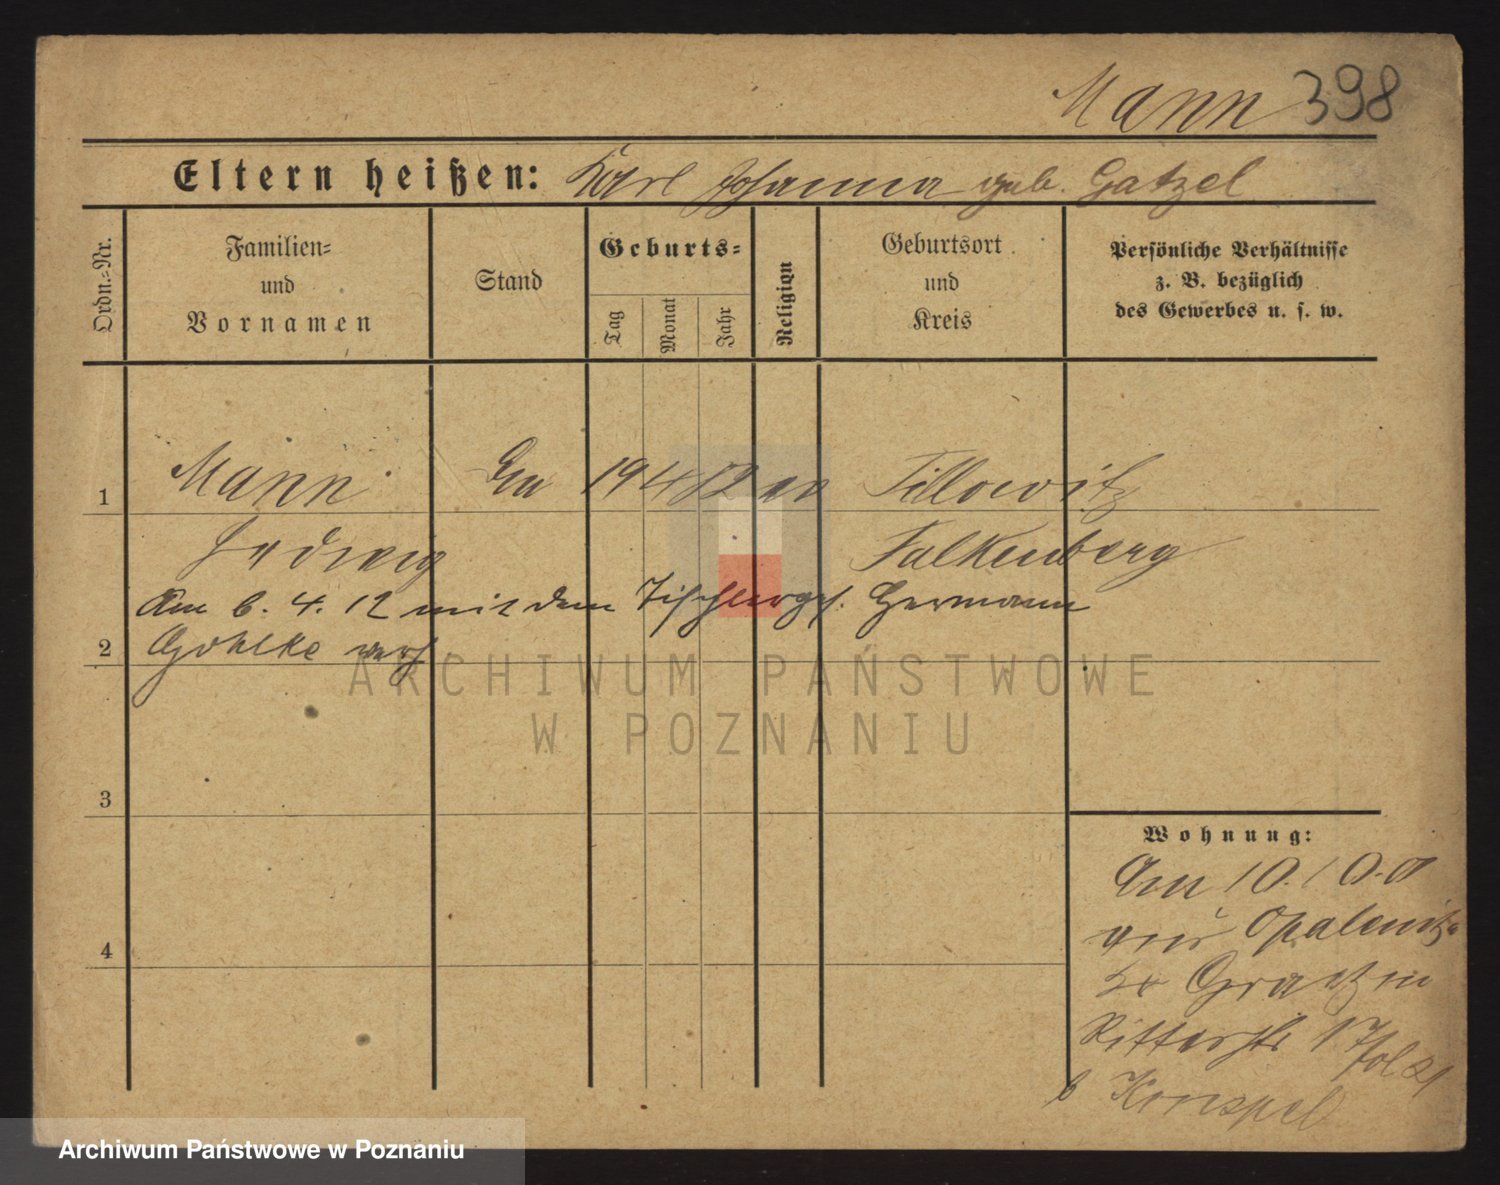 Mann 398
Eltern heißen: Karl Johanna geb. Gatzel
Ordn.=Nr.
Familien=
und
Vornamen
Stand
Geburts=
Tag
Monat
Jahr
Religion
Geburtsort
und
Kreis
Persönliche Verhältnisse
z. B. bezüglich
des Gewerbes u. s. w.
1 Mann 19 4 82 Tillowitz
Hedwig Falkenberg
Am 6. 4. 12 mit dem Tischlerges. Hermann
2 Gohlke verh
ARCHIWUM PAŃSTWOWE
W POZNANIU
3
4
Wohnung:
Am 10. 10.
aus Opalenitza
Kr Graetz in
Ritterstr 17
b
Archiwum Państwowe w Poznaniu